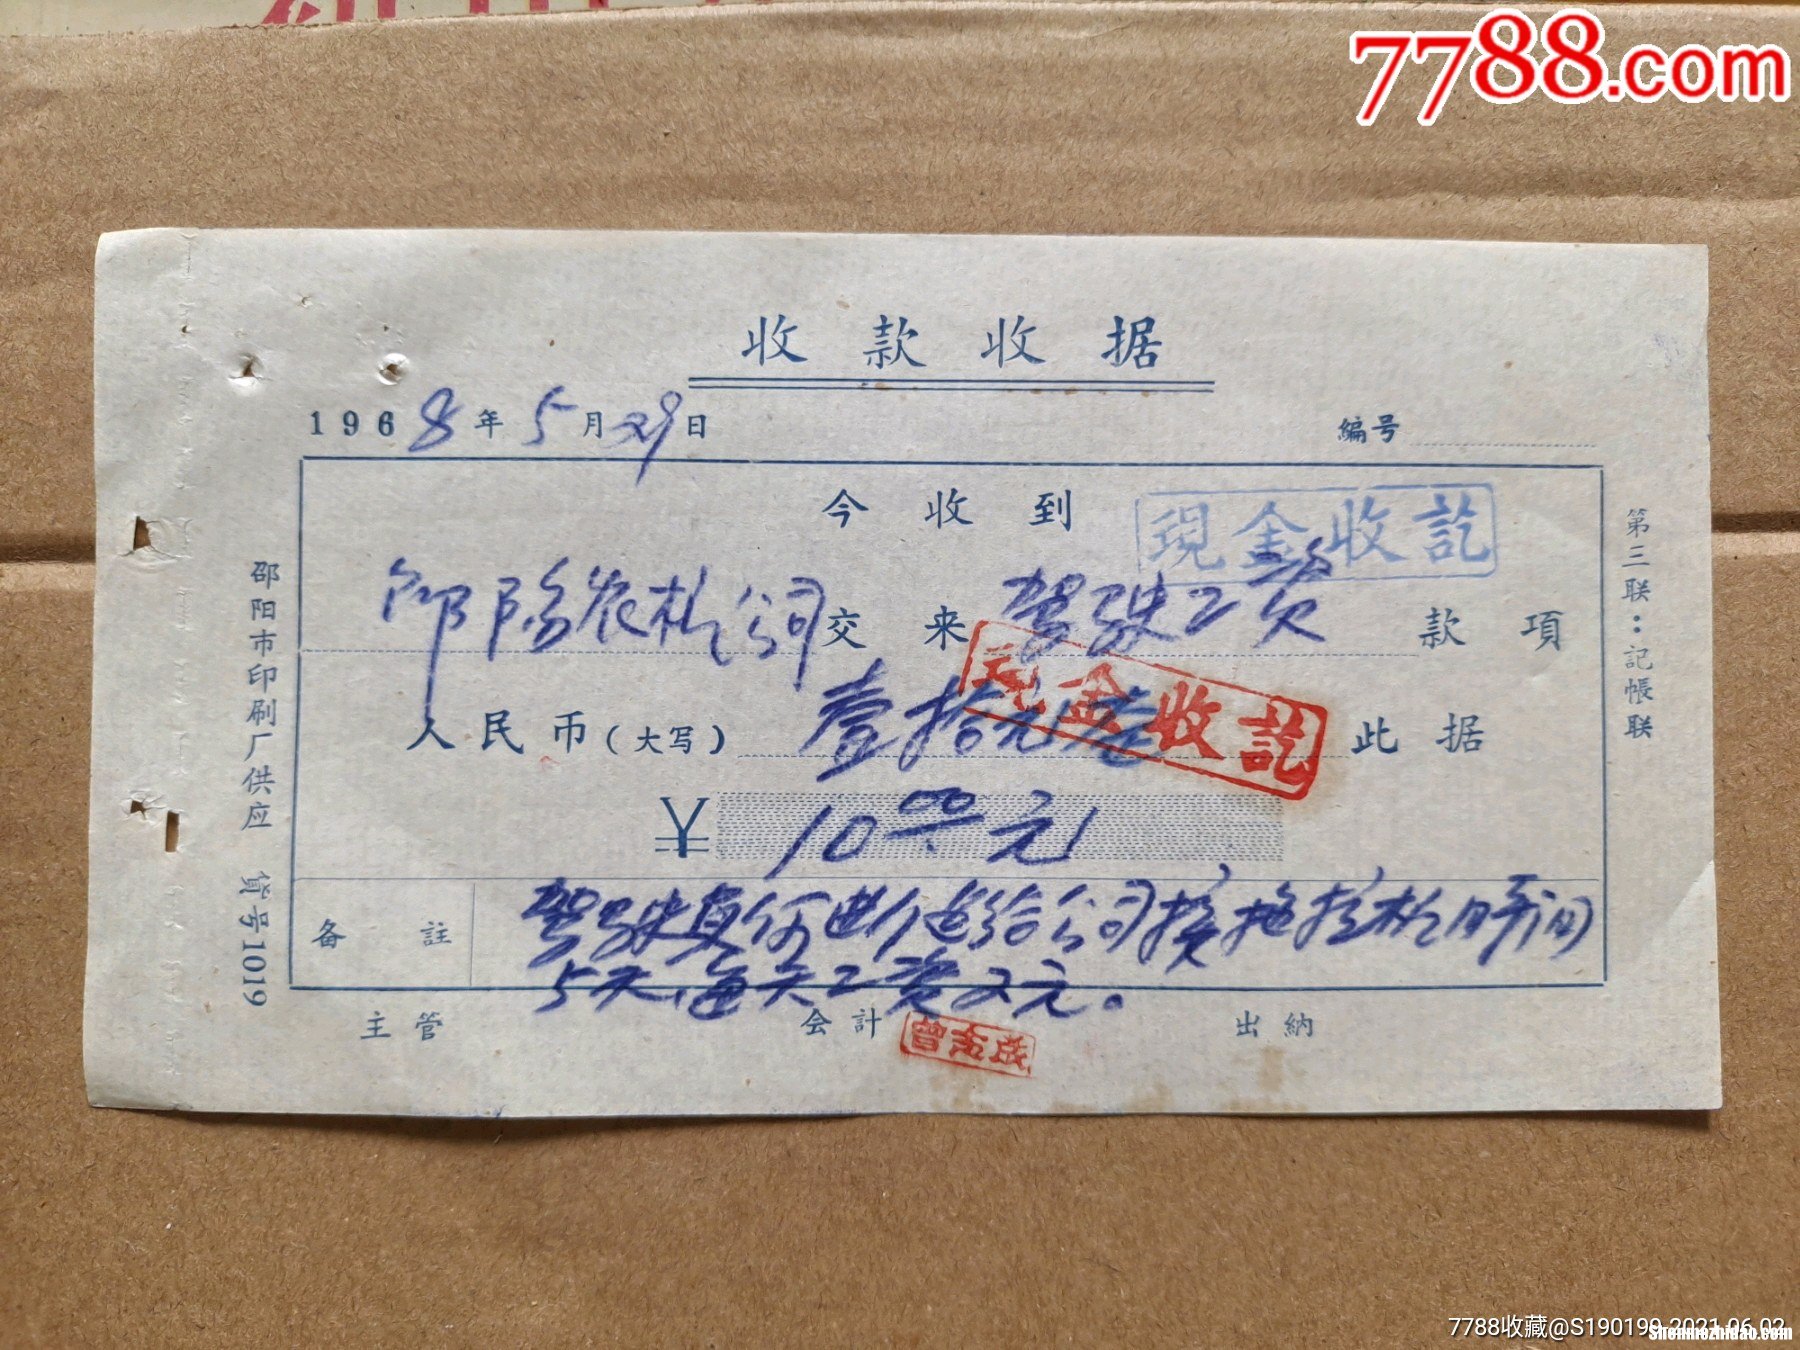 7788.com
收款收据
1968年5月29日
编号
今收到
現金收訖
邵阳农机公司交来驾驶工资款項
現金收訖
人民币(大写)壹拾元 此据
¥10.00元
备註
驾驶员何 给公司接拖拉机时间
5天,每天工资2元。
主管 会計 出納
邵阳市印刷厂供应 货号1019
第三联:記帳联
7788收藏@S190199 2021.06.02
Shenmezhidao.com